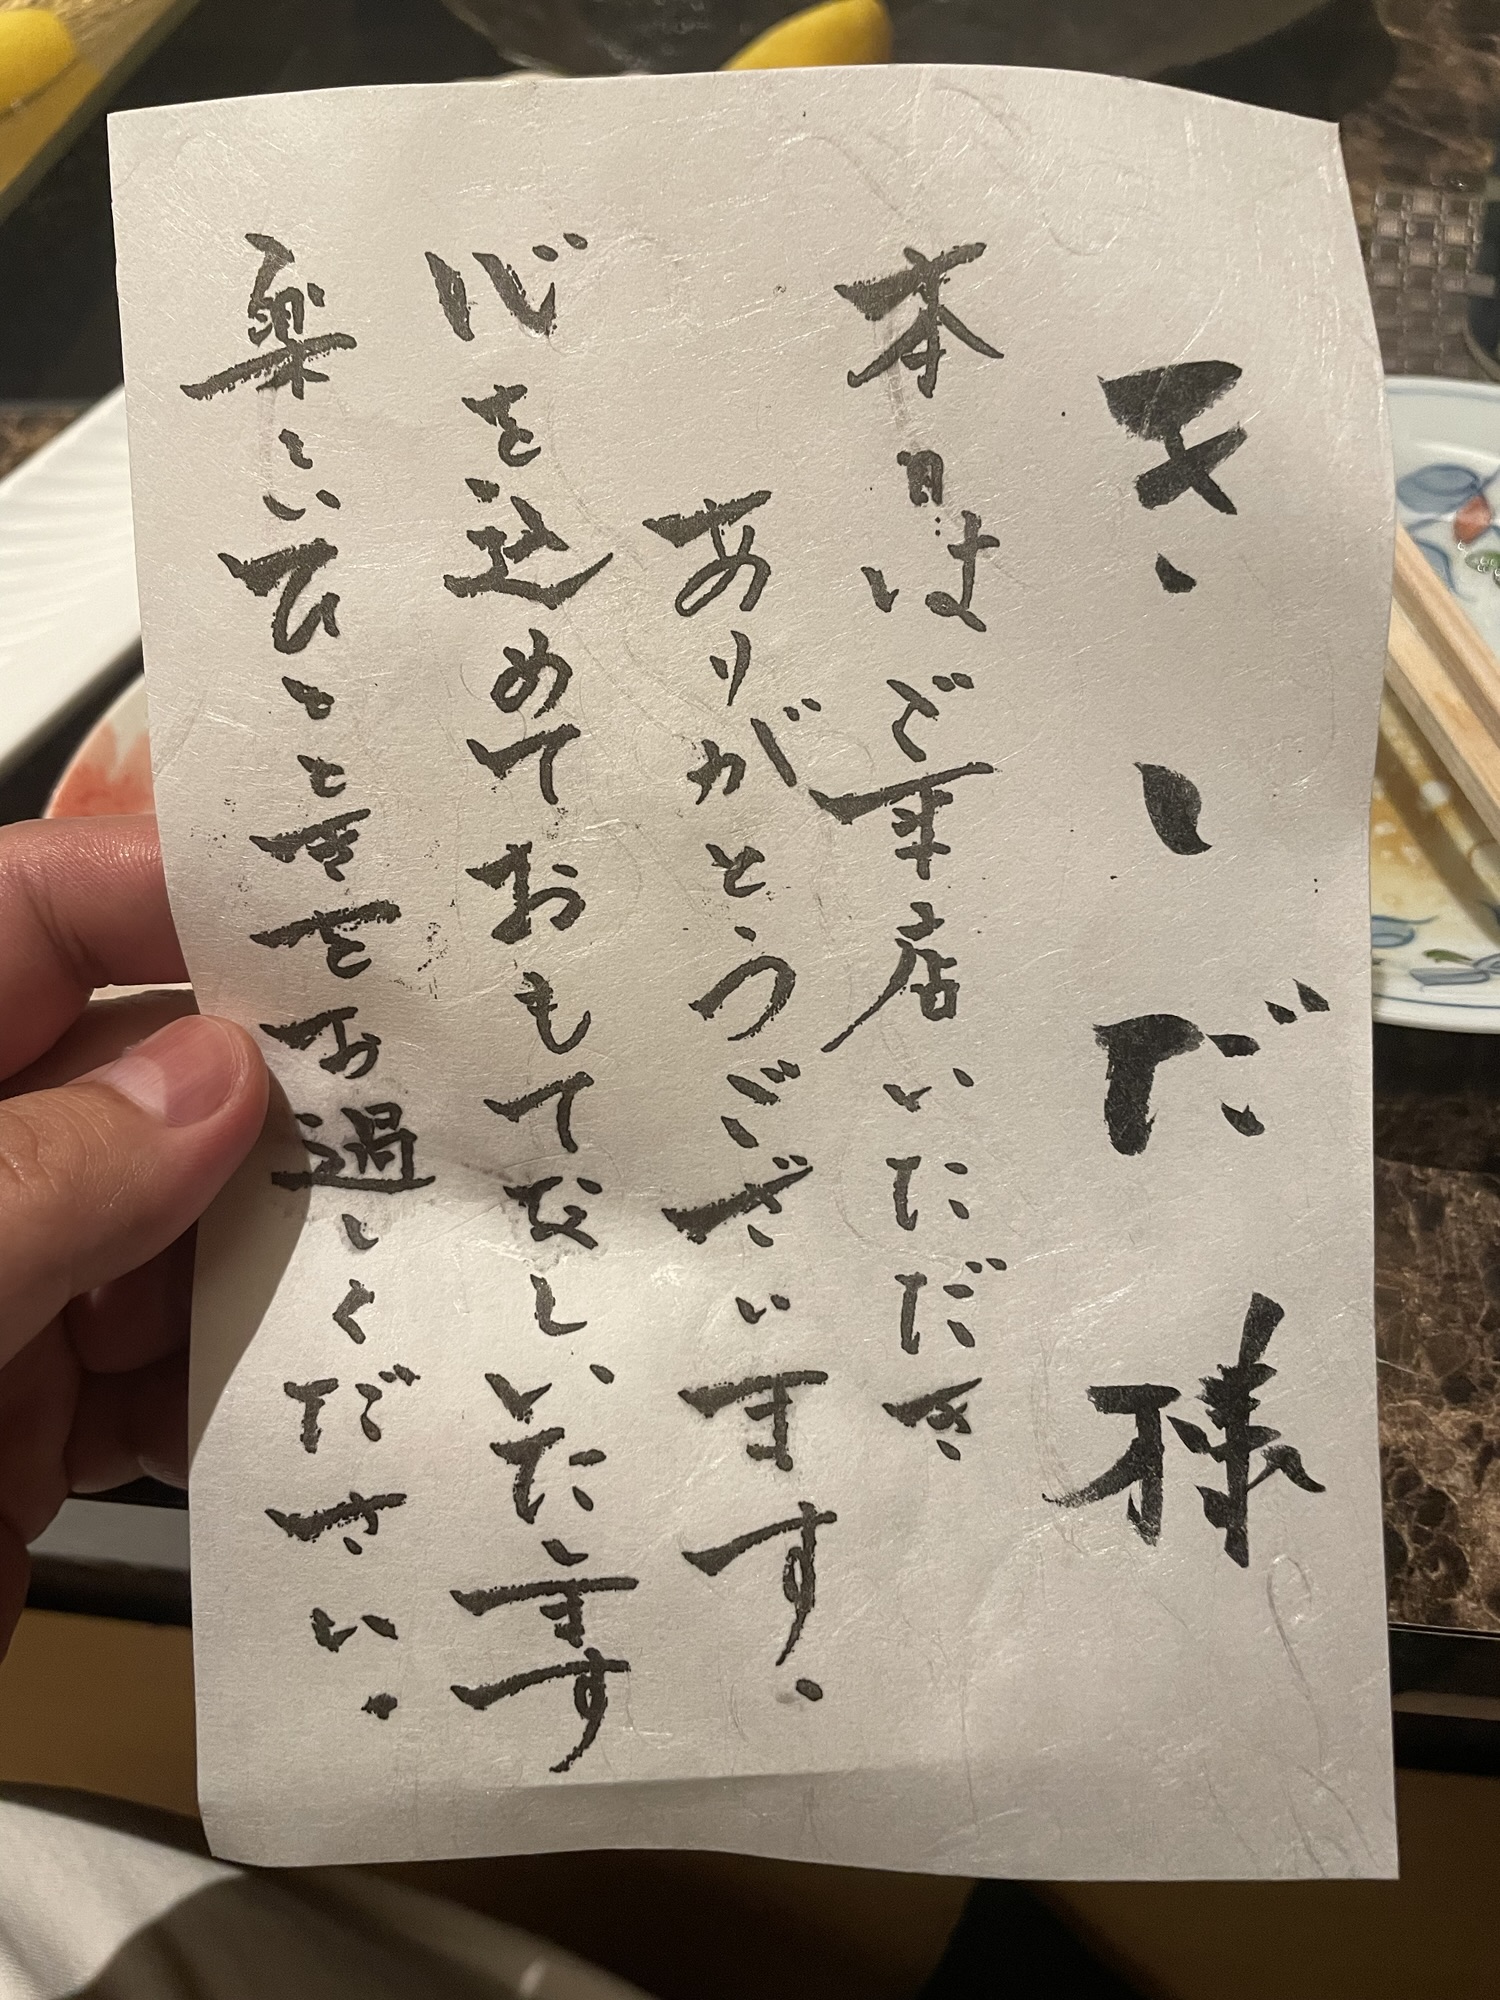 きしだ 様
本日はご来店いただき
ありがとうございます。
心を込めておもてなしいたします
楽しいひとときをお過しください。